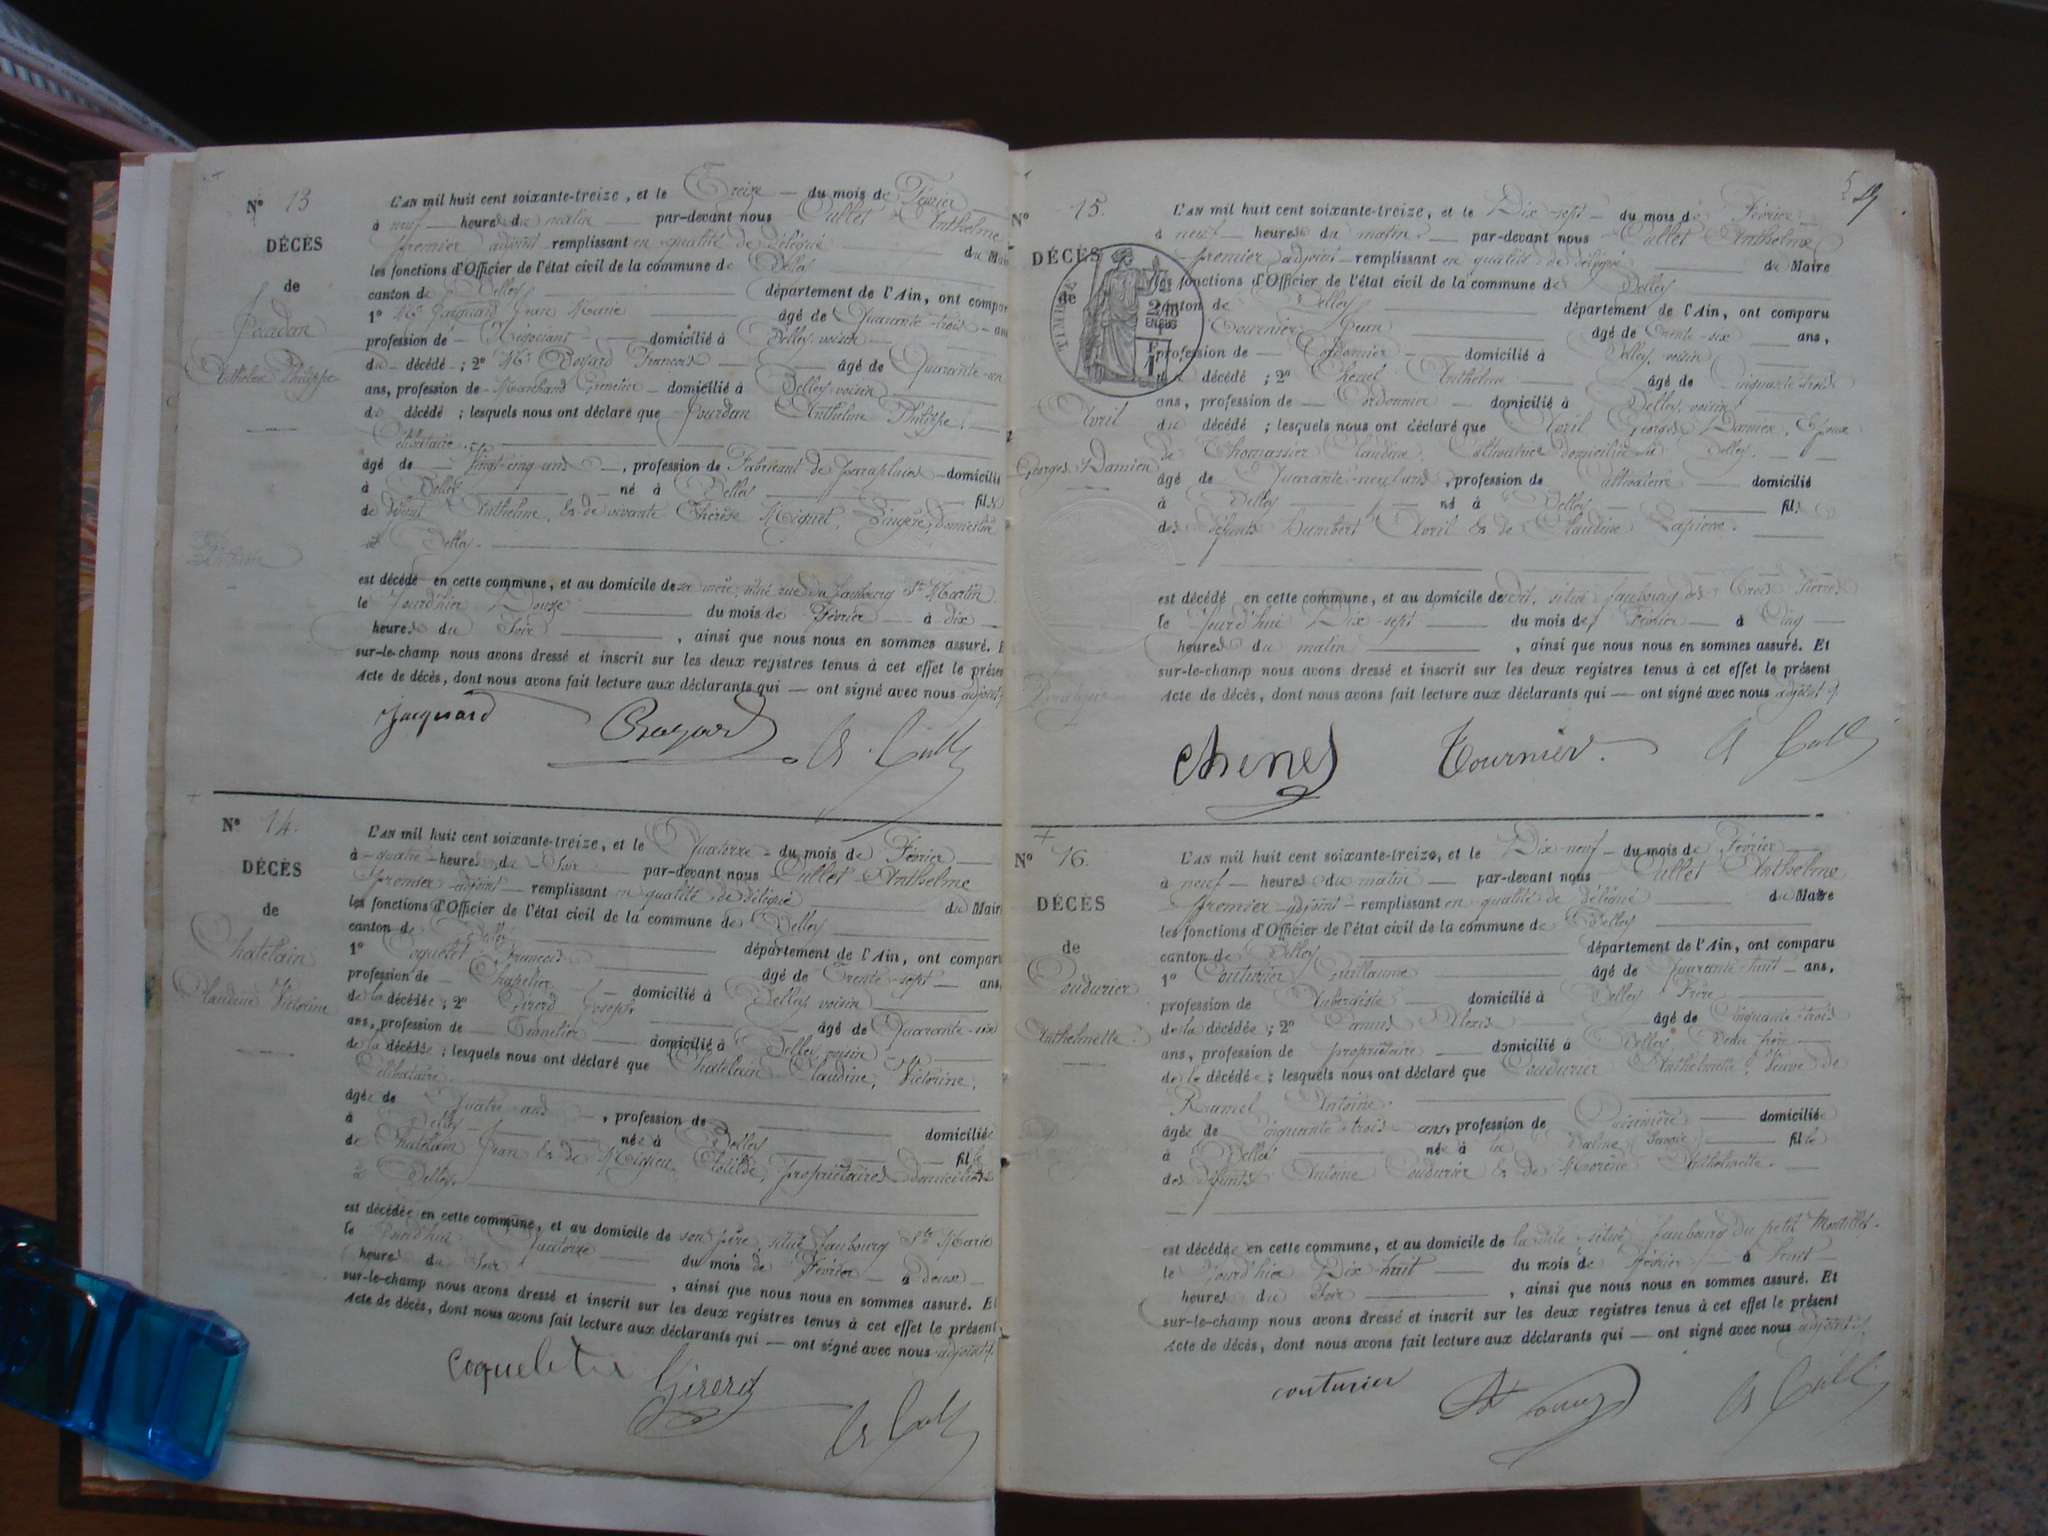 N° 13
DÉCÈS
de
Jourdan
Anthelme Philippe
Célibataire
L'AN mil huit cent soixante-treize, et le Treize du mois de Février
à neuf heures du matin par-devant nous Cullet Anthelme
premier adjoint remplissant en qualité de délégué du Mai
les fonctions d'Officier de l'état civil de la commune de Belley
canton de Belley département de l'Ain, ont compar
1° Mr Jacquard Jean Marie âgé de Quarante-trois an
profession de Négociant domicilié à Belley voisin
du décédé ; 2° Mr Boyard François âgé de Quarante-un
ans, profession de Marchand domicilié à Belley voisin
du décédé ; lesquels nous ont déclaré que Jourdan Anthelme Philippe,
Célibataire
âgé de vingt-cinq ans, profession de Fabricant de parapluies domicilié
à Belley né à Belley fils
de défunt Anthelme, et de vivante Thérèse Miguet, Lingère, domiciliée
à Belley.
est décédé en cette commune, et au domicile de sa mère, situé rue du faubourg St Martin
le jourd'hier Douze du mois de Février à dix
heures du soir, ainsi que nous nous en sommes assuré. E
sur-le-champ nous avons dressé et inscrit sur les deux registres tenus à cet effet le présen
Acte de décès, dont nous avons fait lecture aux déclarants qui — ont signé avec nous adjoint
Jacquard Boyard A. Cullet
N° 14.
DÉCÈS
de
Chatelain
Claudine Victorine
L'AN mil huit cent soixante-treize, et le Quatorze du mois de Février
à quatre heures du Soir par-devant nous Cullet Anthelme
premier adjoint remplissant en qualité de délégué du Mair
les fonctions d'Officier de l'état civil de la commune de Belley
canton de Belley département de l'Ain, ont compar
1° Coquelet François âgé de Trente-sept ans
profession de Chapelier domicilié à Belley voisin
de la décédée ; 2° Girerd Joseph âgé de Quarante-six
ans, profession de Tonnelier domicilié à Belley voisin
de la décédée ; lesquels nous ont déclaré que Chatelain Claudine, Victorine,
Célibataire.
âgée de Quatre ans, profession de domiciliée
à Belley née à Belley fille
de Chatelain Jean et de Clotilde, propriétaires domiciliés
à Belley.
est décédée en cette commune, et au domicile de son père, situé faubourg Ste Marie
le jourd'hui Quatorze du mois de Février à deux
heures du Soir, ainsi que nous nous en sommes assuré. Et
sur-le-champ nous avons dressé et inscrit sur les deux registres tenus à cet effet le présent
Acte de décès, dont nous avons fait lecture aux déclarants qui — ont signé avec nous adjoint
Girerd A. Cullet
19
N° 15.
DÉCÈS
de
TIMBRE
2/10
EN SUS
Avril
Georges Damien
L'AN mil huit cent soixante-treize, et le Dix-sept du mois de Février
à neuf heures du matin par-devant nous Cullet Anthelme
premier adjoint remplissant en qualité de délégué du Maire
les fonctions d'Officier de l'état civil de la commune de Belley
canton de Belley département de l'Ain, ont comparu
Tournier Jean âgé de Trente-six ans,
profession de Cordonnier domicilié à Belley voisin
décédé ; 2° Chenel Anthelme âgé de Cinquante-trois
ans, profession de Cordonnier domicilié à Belley voisin
du décédé ; lesquels nous ont déclaré que Avril Georges Damien, Epoux
de Thomassier Claudine, Cultivatrice domiciliée à Belley.
âgé de Quarante-neuf ans, profession de Cultivateur domicilié
à Belley né à Belley fils
des défunts Humbert Avril et de Claudine Lapierre.
est décédé en cette commune, et au domicile dudit, situé faubourg des Trois Pierres
le jourd'hui Dix-sept du mois de Février à Cinq
heures du matin, ainsi que nous nous en sommes assuré. Et
sur-le-champ nous avons dressé et inscrit sur les deux registres tenus à cet effet le présent
Acte de décès, dont nous avons fait lecture aux déclarants qui — ont signé avec nous adjoint
Chenel Tournier A. Cullet
N° 16.
DÉCÈS
de
Coudurier
Anthelmette
L'AN mil huit cent soixante-treize, et le Dix-neuf du mois de Février
à neuf heures du matin par-devant nous Cullet Anthelme
premier adjoint remplissant en qualité de délégué du Maire
les fonctions d'Officier de l'état civil de la commune de Belley
canton de Belley département de l'Ain, ont comparu
1° Couturier Guillaume âgé de quarante-huit ans,
profession de Aubergiste domicilié à Belley Frère
de la décédée ; 2° Alexis âgé de Cinquante-trois
ans, profession de propriétaire domicilié à Belley, Beau frère
de la décédée ; lesquels nous ont déclaré que Coudurier Anthelmette, Veuve de
Antoine.
âgée de Cinquante-trois ans, profession de Cuisinière domiciliée
à Belley née à la Balme (Savoie) fille
des défunts Antoine Coudurier et de Anthelmette.
est décédée en cette commune, et au domicile de situé faubourg du petit
le jourd'hier Dix-huit du mois de Février à huit
heures du Soir, ainsi que nous nous en sommes assuré. Et
sur-le-champ nous avons dressé et inscrit sur les deux registres tenus à cet effet le présent
Acte de décès, dont nous avons fait lecture aux déclarants qui — ont signé avec nous adjoint
couturier A. Cullet